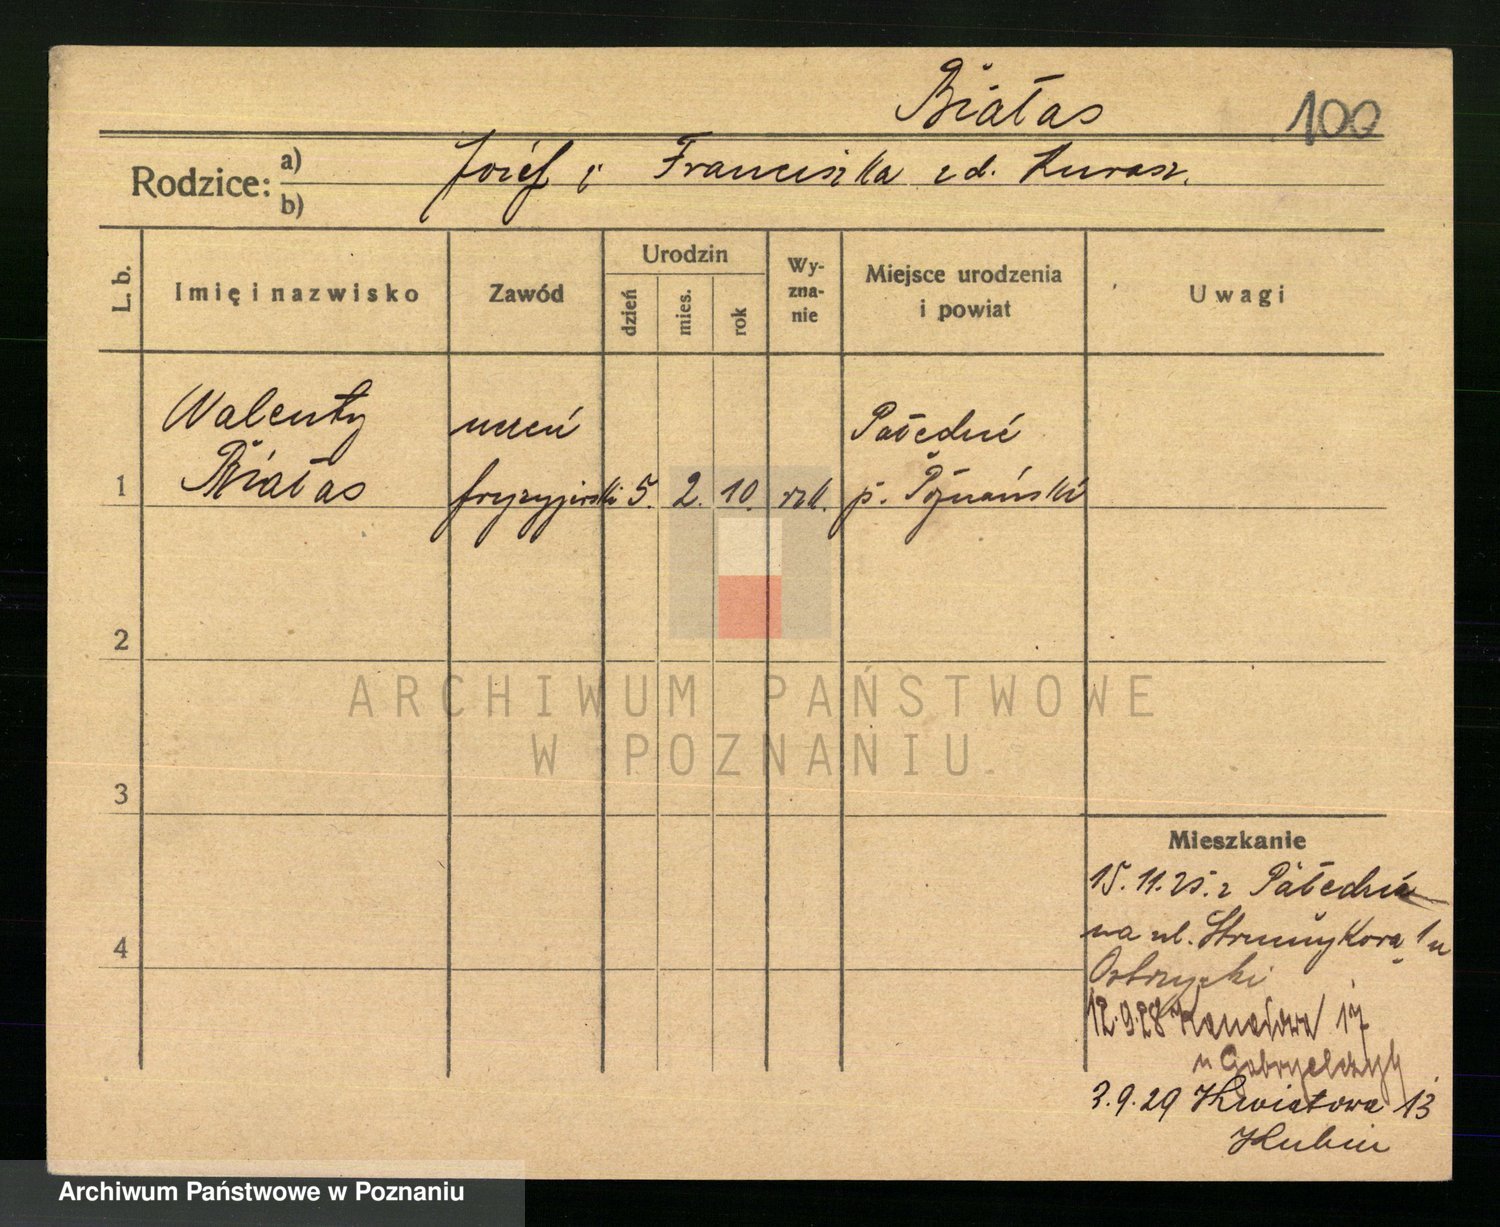 Białas 100
Rodzice: a) b) Józef i Franciszka zd. Kurasz.
L. b. Imię i nazwisko Zawód Urodzin dzień mies. rok Wy-zna-nie Miejsce urodzenia i powiat Uwagi
Walenty uczeń Pałędzie
1 Białas fryzyjerski 5. 2. 10. rzk. p. Poznański
2
ARCHIWUM PAŃSTWOWE
W POZNANIU
3
Mieszkanie
15.11.25. z Pałędzia
na ul. Strumykowa 1 u
4
12.9.28 Kanałowa 17
u
3.9.29 Kwiatowa 13
Kubiu
Archiwum Państwowe w Poznaniu